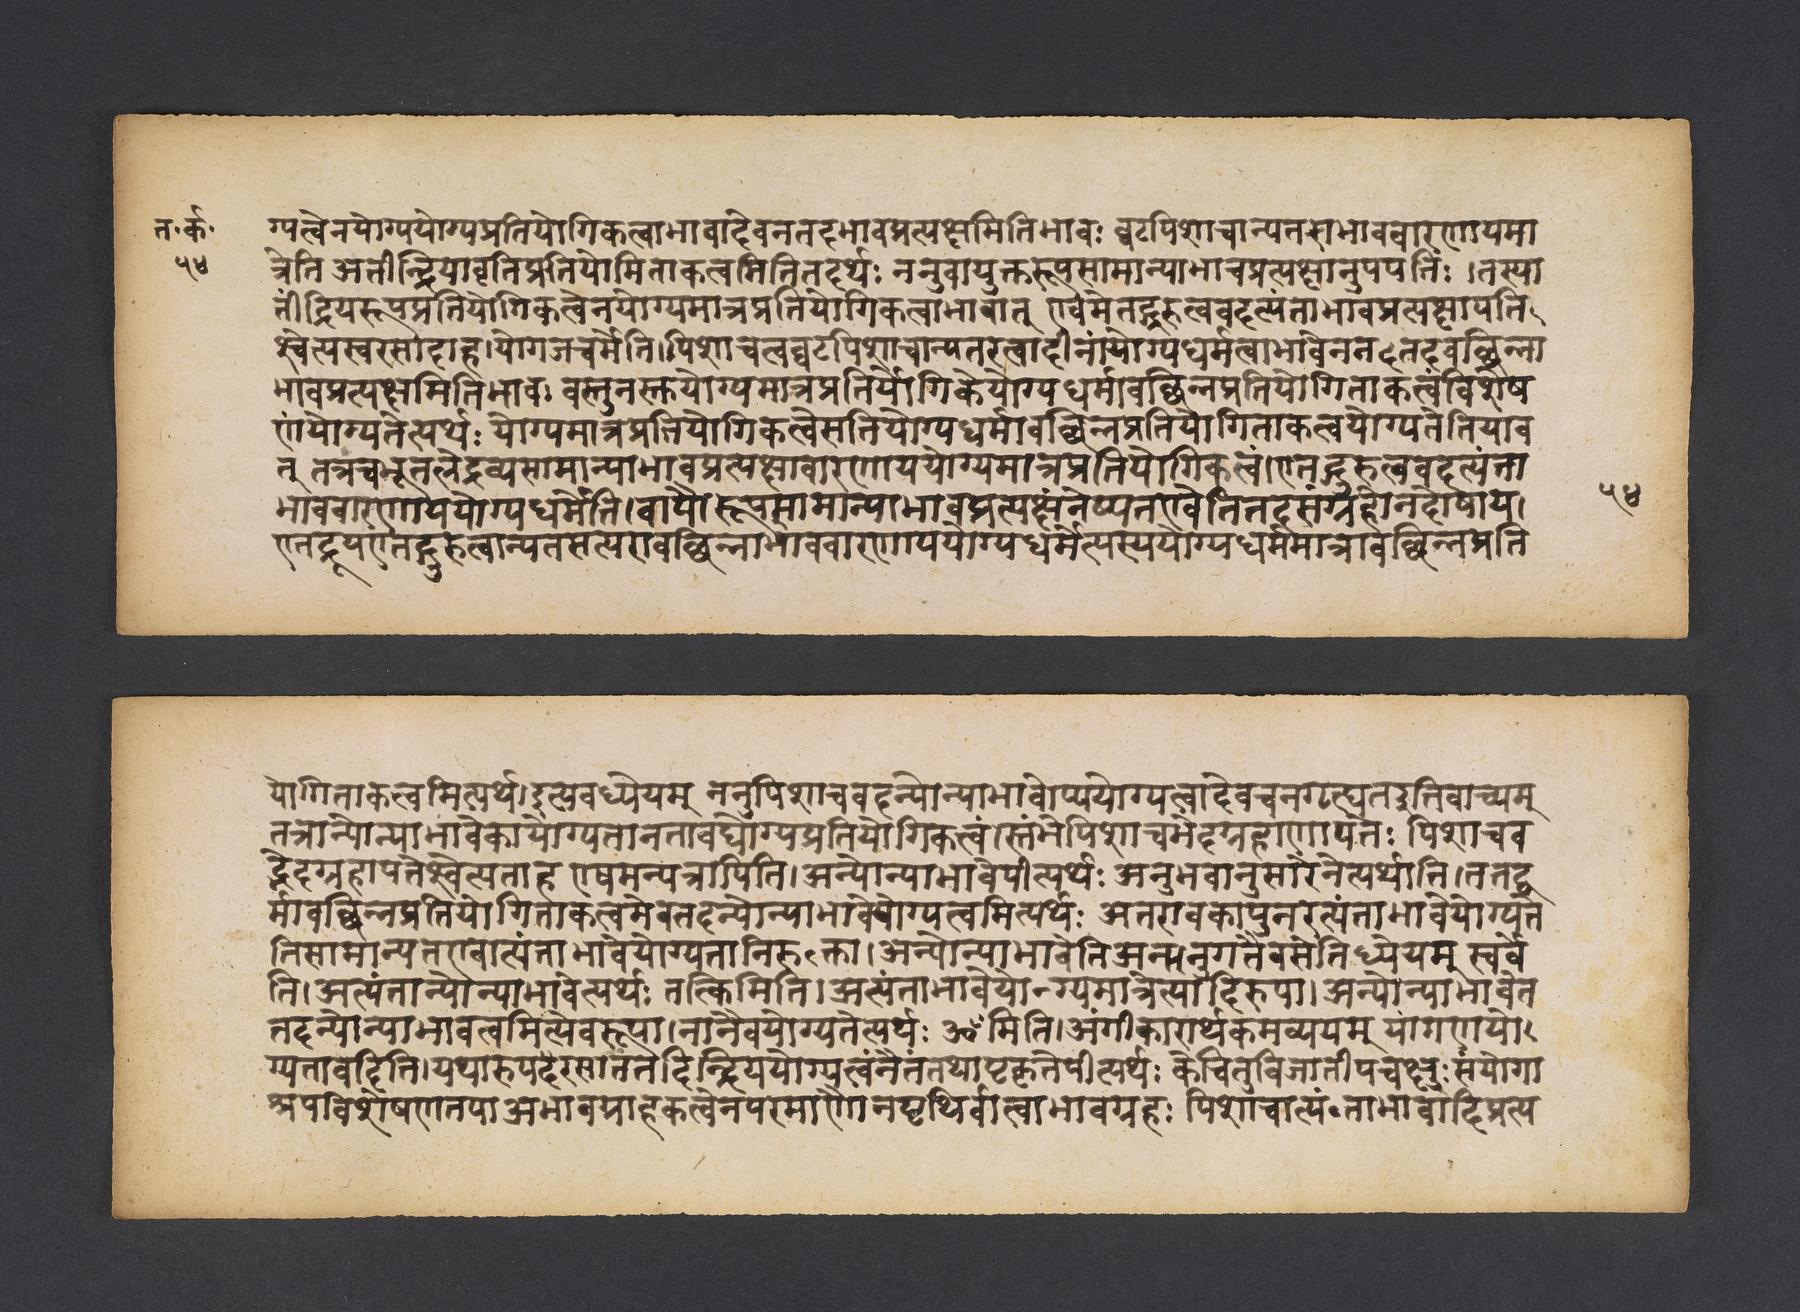 त॰र्क॰
५४
ग्यत्वेनयोग्ययोग्यप्रतियोगिकत्वाभावादेवनतदभावप्रत्यक्षमितिभावः घटपिशाचान्यतराभाववारणायमा
त्रेति अतीन्द्रियावृतिप्रतियोगिताकत्वमितितदर्थः ननुवायुक्तरूपसामान्याभावप्रत्यक्षानुपपत्तिः ।तस्या
तींद्रियरूपप्रतियोगिकत्वेनयोग्यमात्रप्रतियोगिकत्वाभावात् एवमेतद्गुरुत्ववदत्यंताभावप्रत्यक्षापत्ति
श्चेत्यस्वरसादाह।योगजधर्मेति।पिशाचत्वघटपिशाचान्यतरत्वादीनांयोग्यधर्मत्वाभावेननतदवछिन्ना
भावप्रत्यक्षमितिभावः वस्तुनस्तयोग्यमात्रप्रतियोगिकेयोग्यधर्मावछिन्नप्रतियोगिताकत्वंविशेष
णंयोग्यतेत्यर्थः योग्यमात्रप्रतियोगिकत्वेसतियोग्यधर्मावछिन्नप्रतियोगिताकत्वयोग्यतेतियाव
त् तत्रचभूतलेद्रव्यसामान्याभावप्रत्यक्षावारणाययोग्यमात्रप्रतियोगिकत्वं।एतद्गुरुत्ववदत्यंता
भाववारणाययोग्यधर्मेति।वायोरूपसामान्याभावप्रत्यक्षंनेष्यतएवेतितदसंग्रहोनदोषाय।
५४
एतद्रूपएतद्गुरुत्वान्यतसत्यरावछिन्नाभाववारणाययोग्यधर्मेत्यस्ययोग्यधर्ममात्रावछिन्नप्रति
योगिताकत्वमित्यर्थ।इत्यवध्येयम् ननुपिशाचवदन्योन्याभावोप्ययोग्यत्वादेवचनगृत्द्यतइतिवाच्यम्
तत्रान्योन्याभावेकायोग्यतानतावद्योग्यप्रतियोगिकत्वं।स्तंभेपिशाचभेदग्रहाणापत्तेः पिशाचव
द्भेदग्रहापतेश्चेत्यताह एषमन्यत्रापिति।अन्योन्याभावेपीत्यर्थः अनुभवानुसारेनेत्यर्थाति।ततद्ध
र्मावछिन्नप्रतियोगिताकत्वमेवतदन्योन्याभावेयोग्यत्वमित्यर्थः अतएवकापुनरत्यंताभावेयोग्यते
तिसामान्यतएवात्यंताभावेयोग्यतानिरुक्ता।अन्योन्याभावेतिअन्यनुगतैवसेतिध्येयम् स्वर्वे
ति।अत्यंतान्योन्याभावेत्यर्थः तत्किमिति।अत्यंताभावेयोग्यमात्रेत्यादिरुपा।अन्योन्याभावेत
तदन्योन्याभावत्वमित्येवरूपा।नानैवयोग्यतेत्यर्थः ॐमिति।अंगीकारार्थकमव्ययम् यागणयो
ग्यतावदिति।यथारुपदेरसातंतदिन्द्रिययोग्यत्वंनैतंतथाप्टकृतेपीत्यर्थः केचितुविजातीयचक्षुः संयोगा
श्रयविशेषणतयाअभावग्राहकत्वेनपरमाणौनपृथिवीत्वाभावग्रहः पिशाचात्यंताभावादिप्रत्य